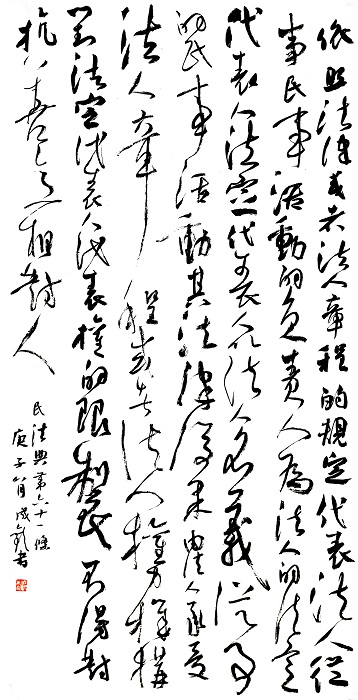 依照法律或者法人章程的規定代表法人從
事民事活動的負責人為法人的法定
代表人法定代表人以法人名義從事
的民事活動其法律後果由法人承受
法人章程或者法人權力機構
對法定代表人代表權的限制不得對
抗善意相對人
民法典第六十一條
庚子八月成書